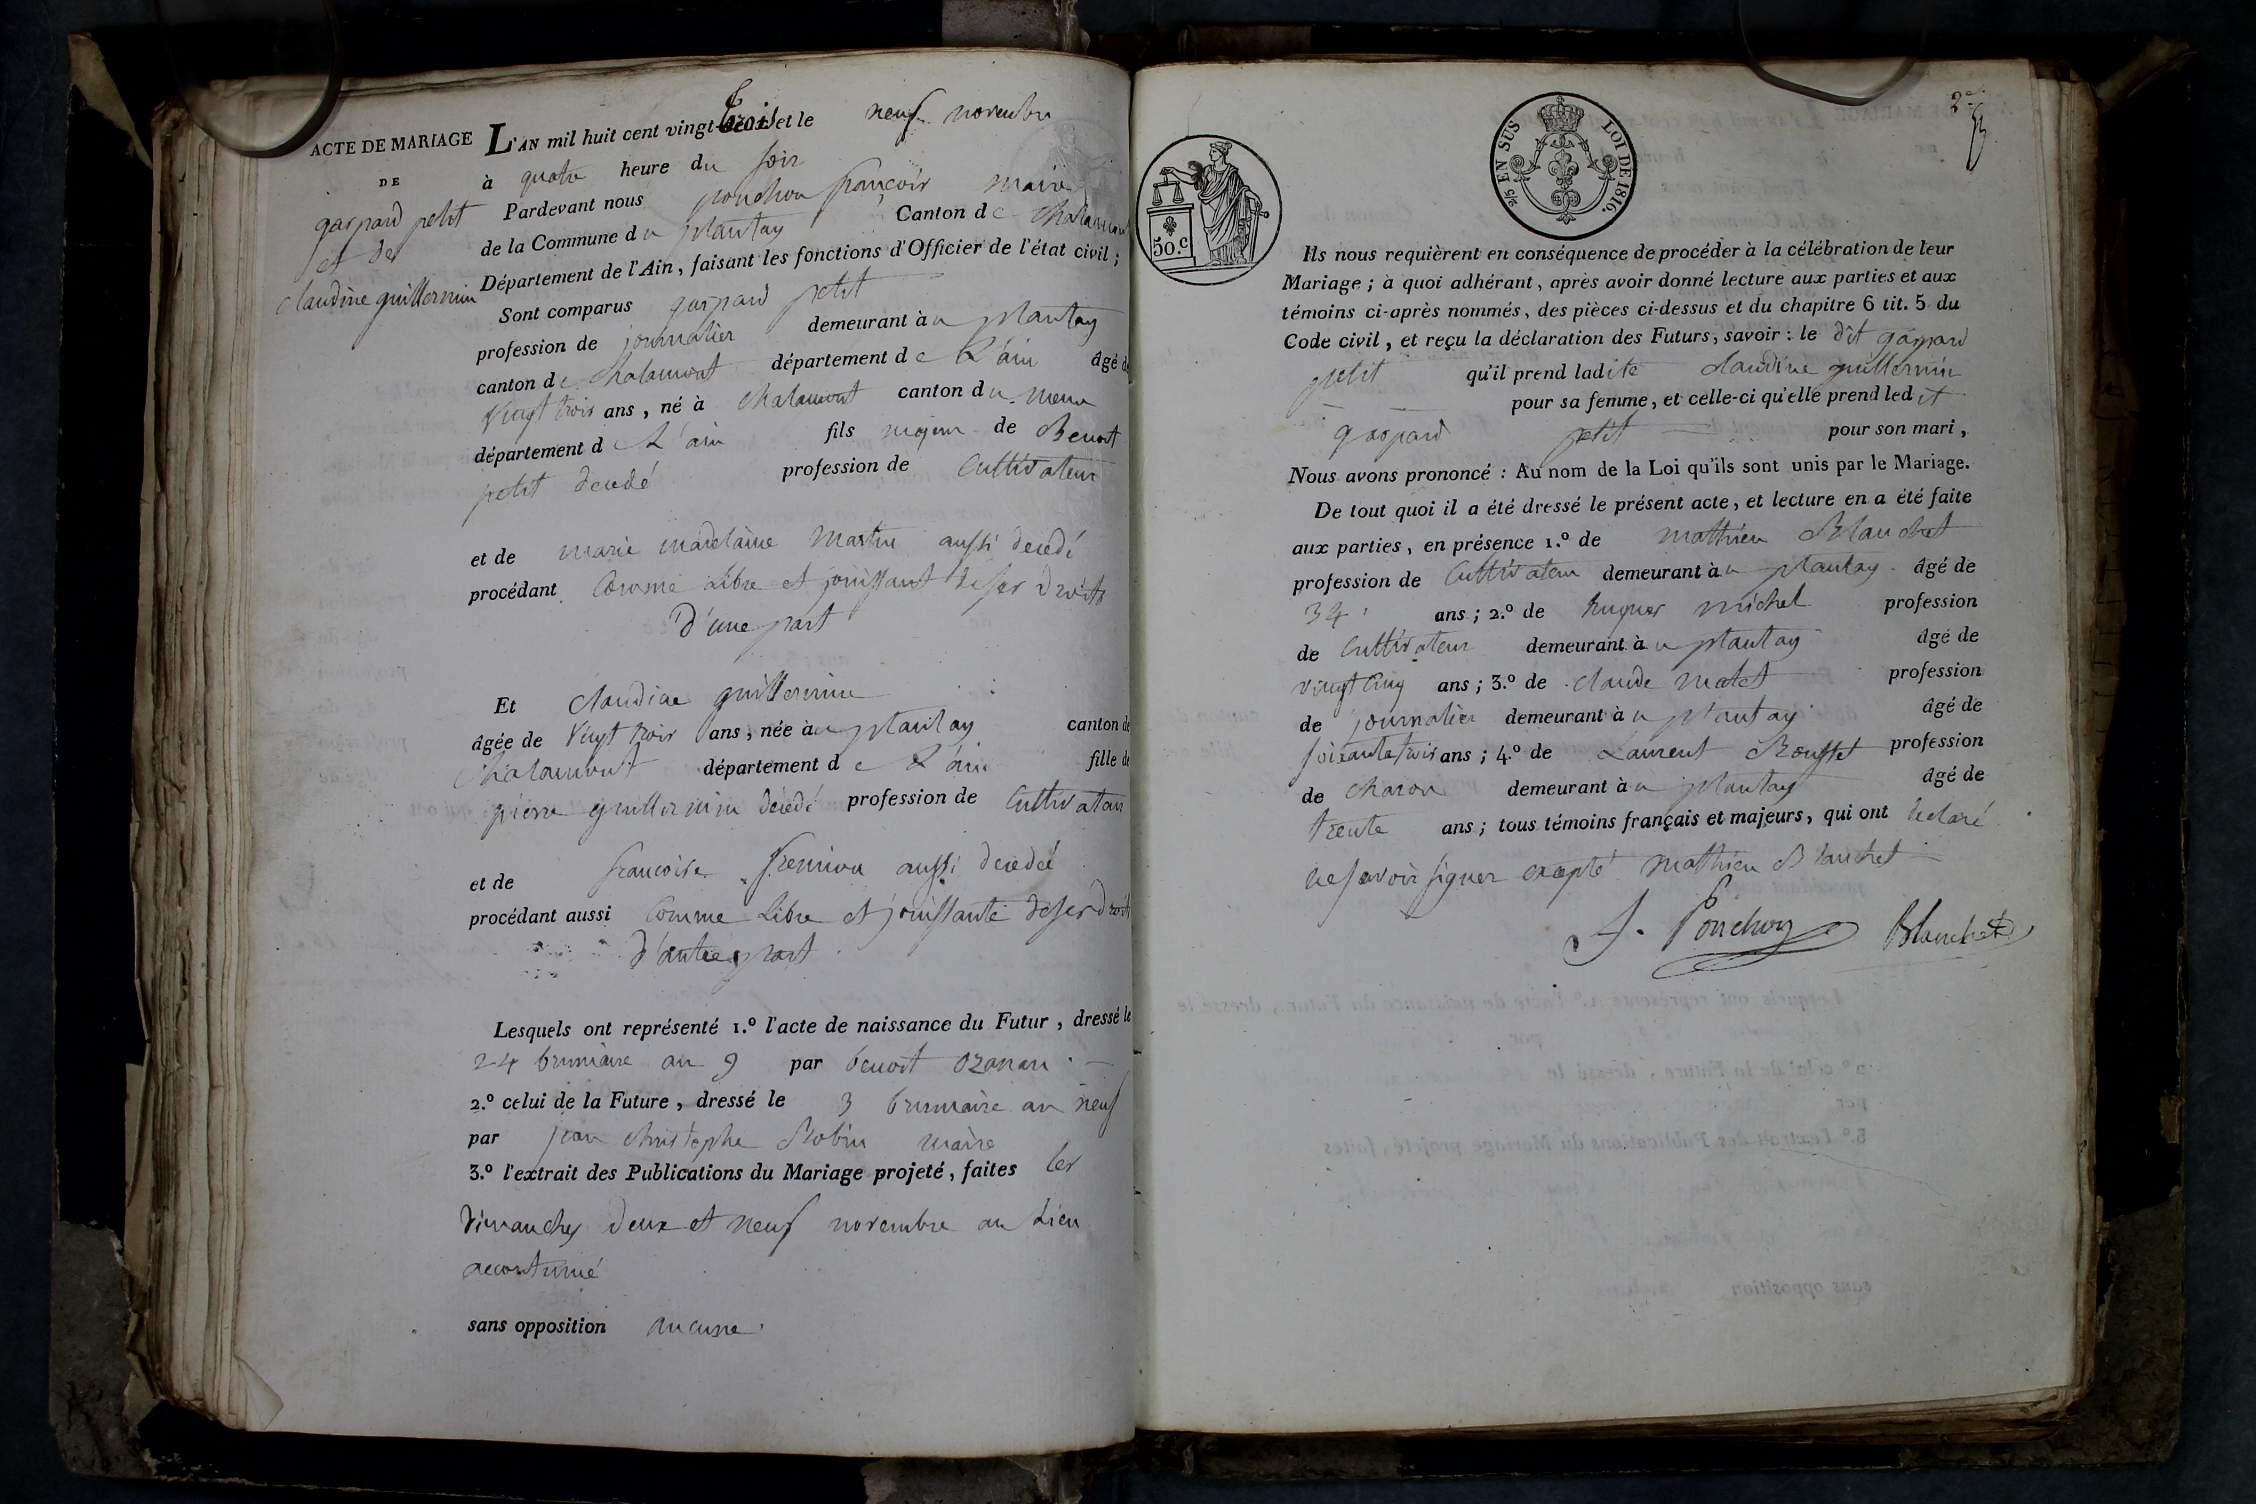 ACTE DE MARIAGE
DE
gaspard petit
et de
claudine guillermin
L'AN mil huit cent vingt-trois et le neuf novembre
à quatre heure du soir
Pardevant nous ponchon françois maire
de la Commune du plantay Canton de chalamont
Département de l'Ain, faisant les fonctions d'Officier de l'état civil;
Sont comparus gaspard petit
profession de journalier demeurant àu plantay
canton de chalamont département de L'ain âgé de
vingt trois ans, né à chalamont canton du meme
département de L'ain fils majeur de Benoit
petit decedé profession de Cultivateur
et de marie madelaine Martin aussi decedé
procédant Comme Libre et jouissant de ses droits
d'une part
Et claudine guillermin
âgée de vingt trois ans, née àu plantay canton de
chalamont département de L'ain fille de
pierre guillermin decedé profession de Cultivateur
et de francoise aussi decedé
procédant aussi Comme Libre et jouissante de ses droits
d'autre part
Lesquels ont représenté 1.º l'acte de naissance du Futur, dressé le
24 brumaire an 9 par benoit ozanan
2.º celui de la Future, dressé le 3 brumaire an neuf
par jean christophe Robin maire
3.º l'extrait des Publications du Mariage projeté, faites les
dimanches deux et neuf novembre au Lieu
accoutumé
sans opposition aucune
50.c
9/5 EN SUS LOI DE 1816.
Ils nous requièrent en conséquence de procéder à la célébration de leur
Mariage; à quoi adhérant, après avoir donné lecture aux parties et aux
témoins ci-après nommés, des pièces ci-dessus et du chapitre 6 tit. 5 du
Code civil, et reçu la déclaration des Futurs, savoir: le dit gaspard
petit qu'il prend ladite claudine guillermin
pour sa femme, et celle-ci qu'elle prend ledit
gaspard petit pour son mari,
Nous avons prononcé: Au nom de la Loi qu'ils sont unis par le Mariage.
De tout quoi il a été dressé le présent acte, et lecture en a été faite
aux parties, en présence 1.º de mathieu Blanchet
profession de Cultivateur demeurant àu plantay âgé de
34 ans; 2.º de hugues michel profession
de Cultivateur demeurant àu plantay âgé de
vingt cinq ans; 3.º de claude matet profession
de journalier demeurant àu plantay âgé de
soixante trois ans; 4.º de Laurent Rousset profession
de charon demeurant àu plantay âgé de
trente ans; tous témoins français et majeurs, qui ont declaré
ne savoir signer excepté mathieu Blanchet
f. Ponchon Blanchet